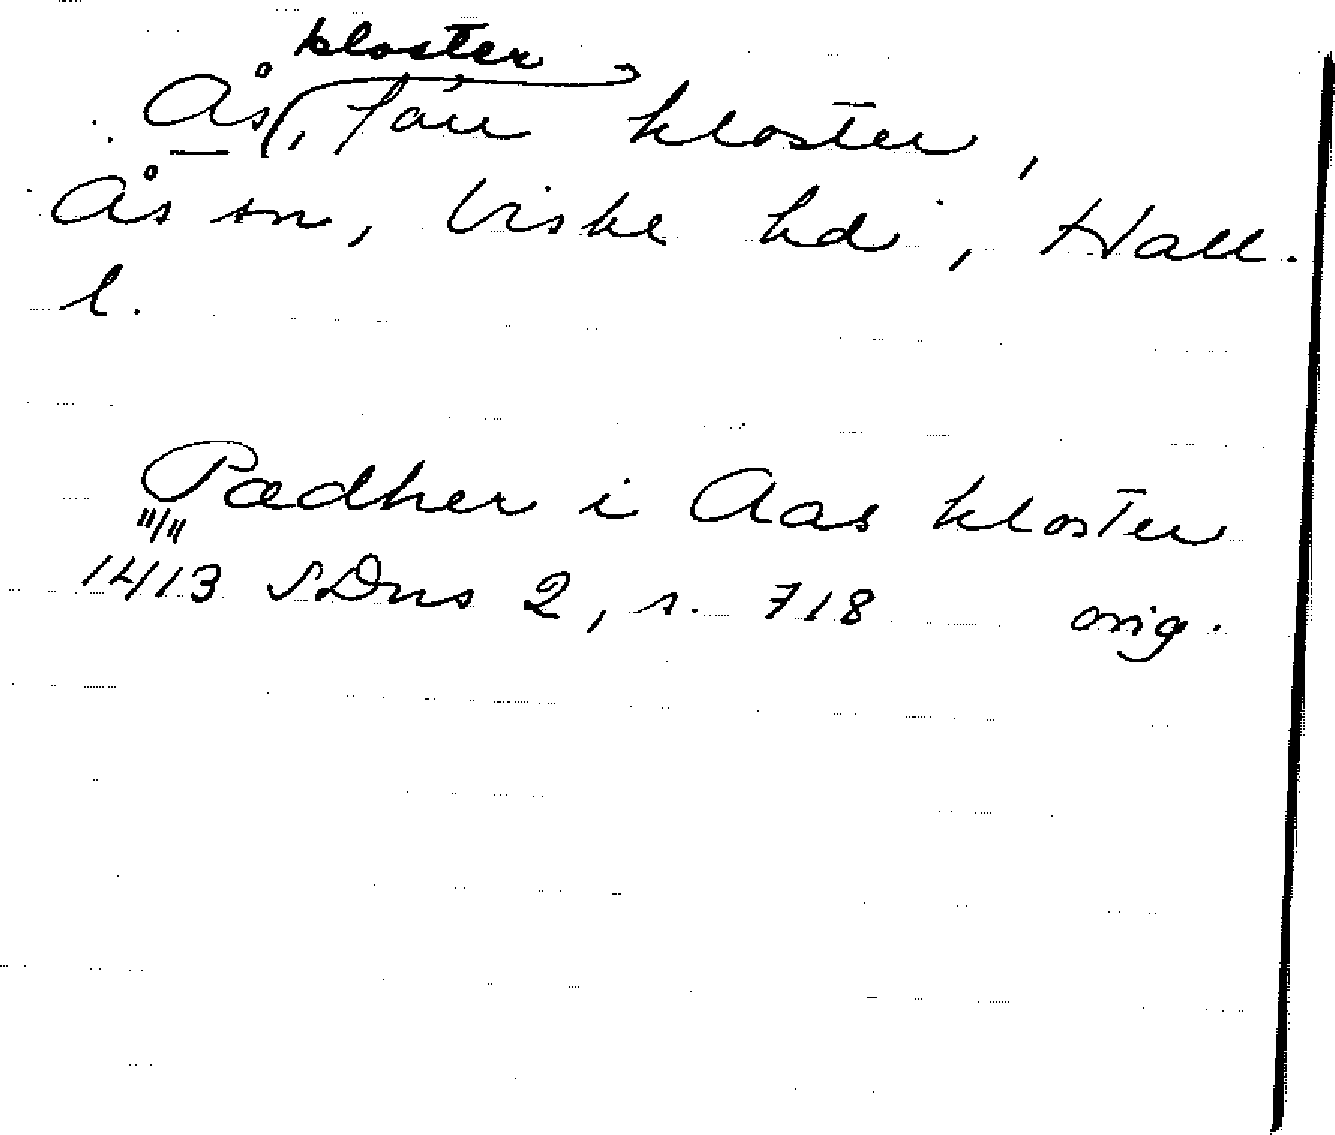 kloster
Ås, f.d. kloster,
Ås sn, Viske hd, Hall.
l.
Pædher i Aas kloster
11/11
1413 SDns 2, s. 718 orig.